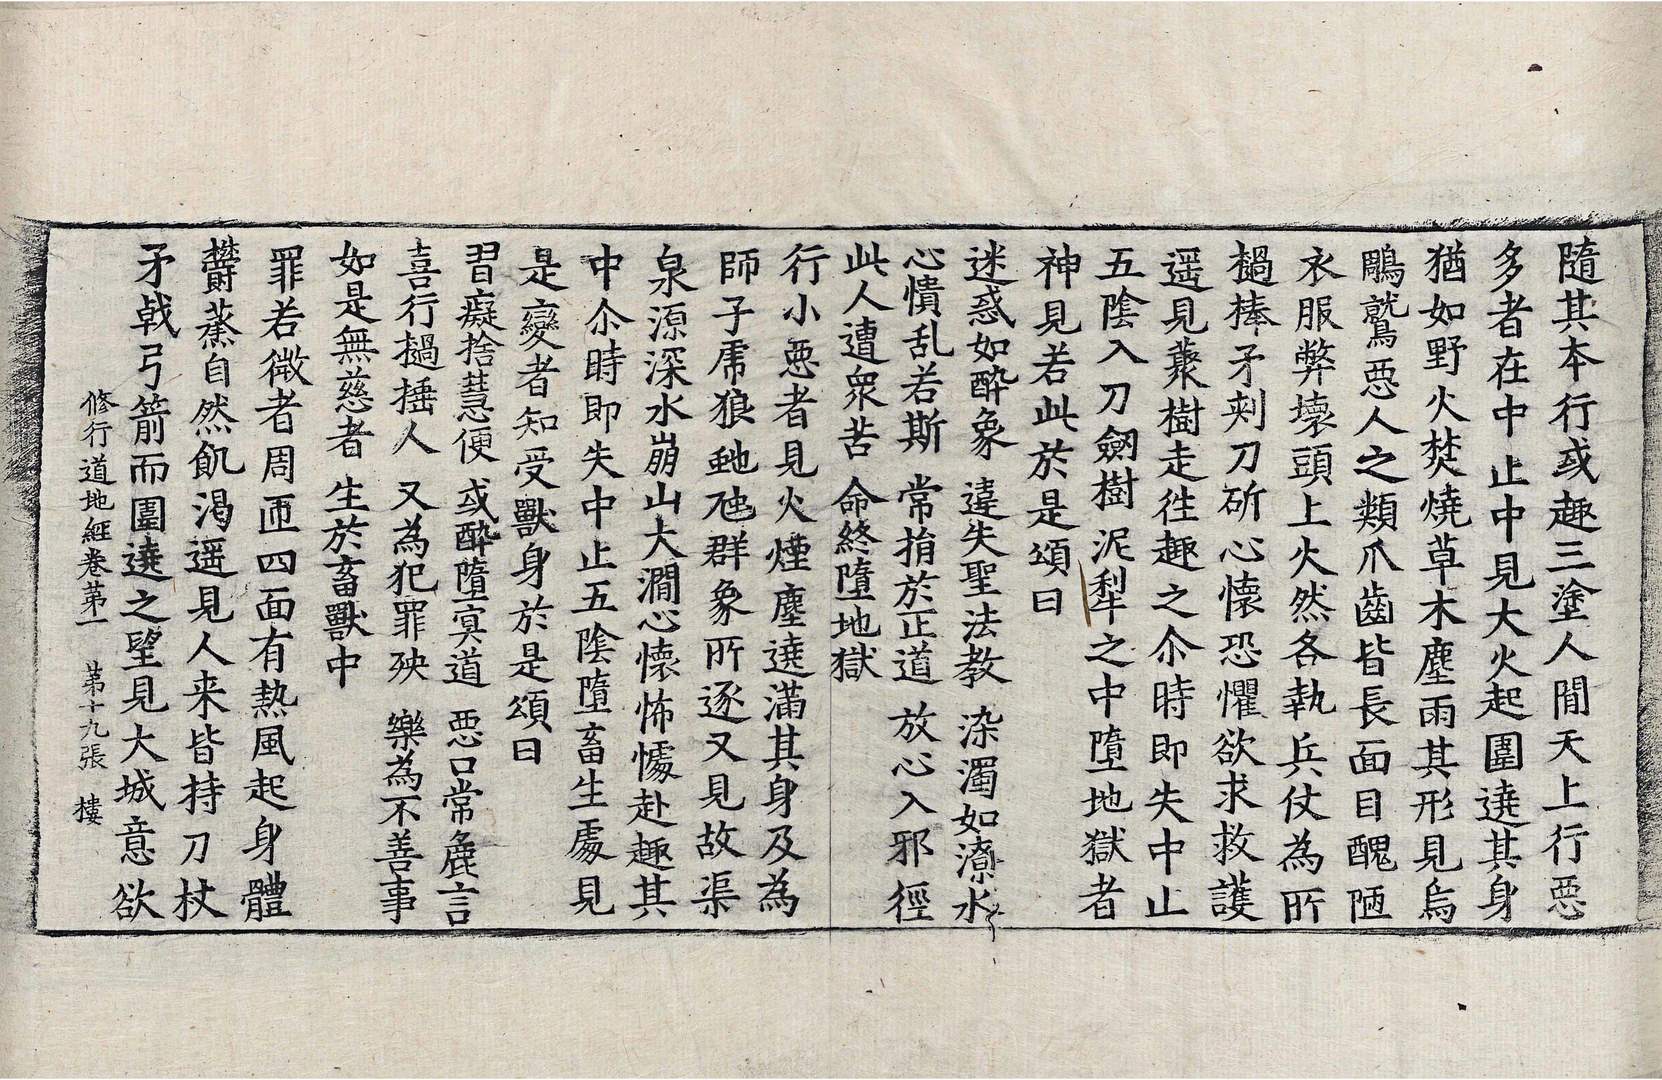 隨其本行或趣三塗人間天上行惡
多者在中止中見大火起圍遶其身
猶如野火焚燒草木塵雨其形見烏
鵰鷲惡人之類爪齒皆長面目醜陋
衣服弊壞頭上火然各執兵仗為所
檛捧矛刺刀斫心懷恐懼欲求救護
遥見藂樹走徃趣之尒時即失中止
五陰入刀劒樹泥犁之中墮地獄者
神見若此於是頌曰
迷惑如醉象 違失聖法教 染濁如潦水
心憒乱若斯 常捐於正道 放心入邪徑
此人遭衆苦 命終墮地獄
行小惡者見火煙塵遶滿其身及為
師子虎狼虵虺群象所逐又見故渠
泉源深水崩山大澗心懷怖懅赴趣其
中尒時即失中止五陰墮畜生處見
是變者知受獸身於是頌曰
習癡捨慧便 或醉墮冥道 惡口常麁言
喜行檛捶人 又為犯罪殃 樂為不善事
如是無慈者 生於畜獸中
罪若微者周匝四面有熱風起身體
欝蒸自然飢渴遥見人来皆持刀杖
矛戟弓箭而圍遶之望見大城意欲
修行道地經卷第一 第十九張 樓